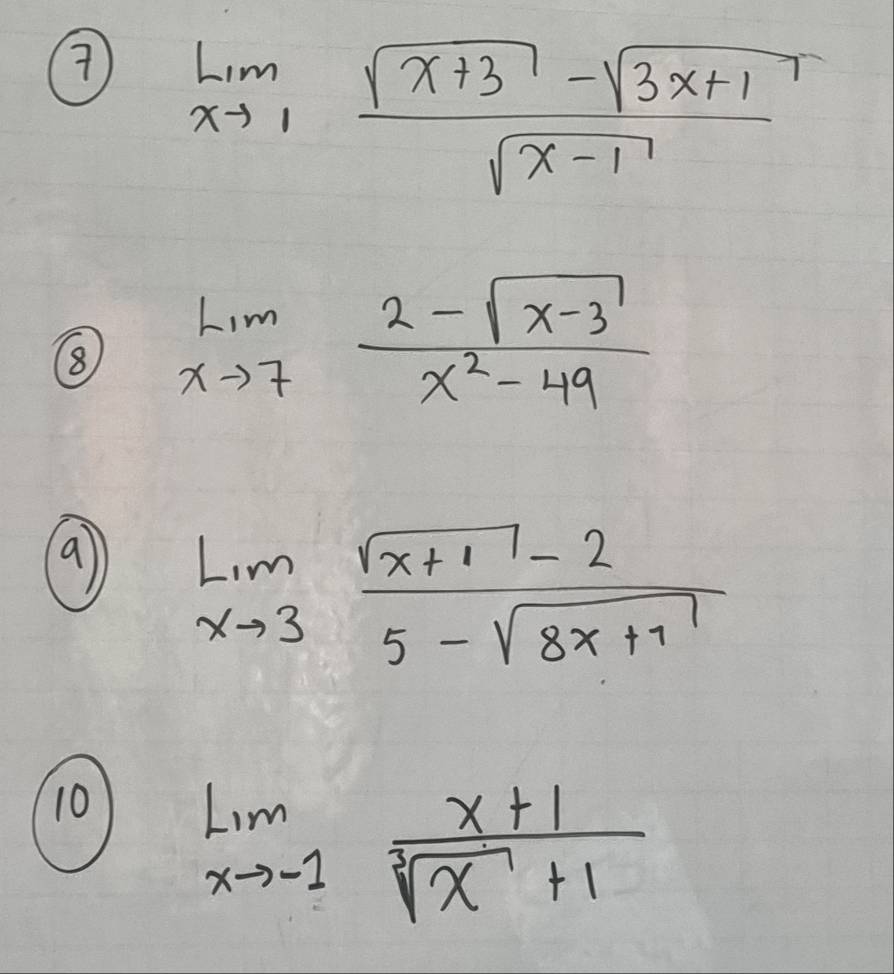 ⑦ Lim x→1 (√(x+3) - √(3x+1)) / √(x-1)
⑧ Lim x→7 (2 - √(x-3)) / (x² - 49)
⑨ Lim x→3 (√(x+1) - 2) / (5 - √(8x+1))
⑩ Lim x→-1 (x+1) / (∛x + 1)